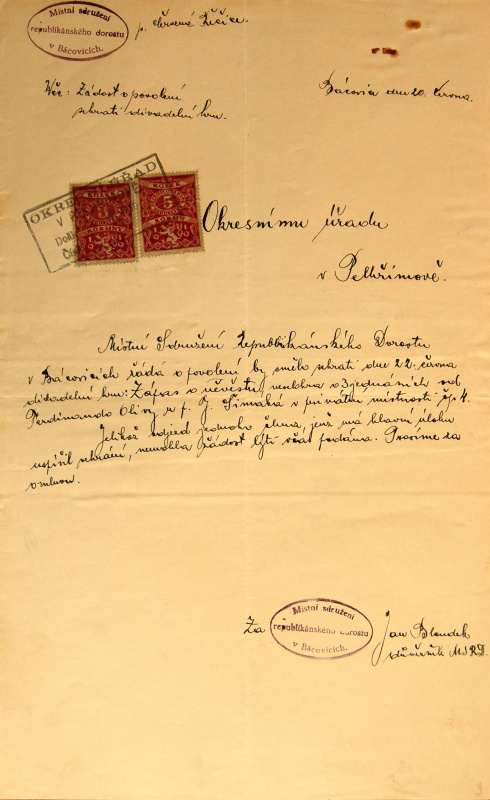 Místní sdružení
republikánského dorostu
v Bácovicích.
p. Červená Řečice.
Věc: Žádost o povolení
sehrati divadelní hru.
Bácovice dne 20. června.
OKRESNÍ ÚŘAD
V
KOLEK 3 KORUNY 1919
KOLEK 5 KORUN 1919
Okresnímu úřadu
v Pelhřimově.
Místní Sdružení Republikánského Dorostu
v Bácovicích žádá o povolení by směla sehrati dne 22. června
divadelní hru: Zápas o veselohra o 3 jednáních od
Ferdinanda Olivy, u p. J. Šimáka v privátní místnosti čp. 4.
Jelikož odjezd jednoho člena, jenž má hlavní úlohu
uspíšil sehrání, nemohla žádost býti včas podána. Prosíme za
omluvu.
Za
Místní sdružení
republikánského dorostu
v Bácovicích.
Jan
důvěrník M.S.R.D.